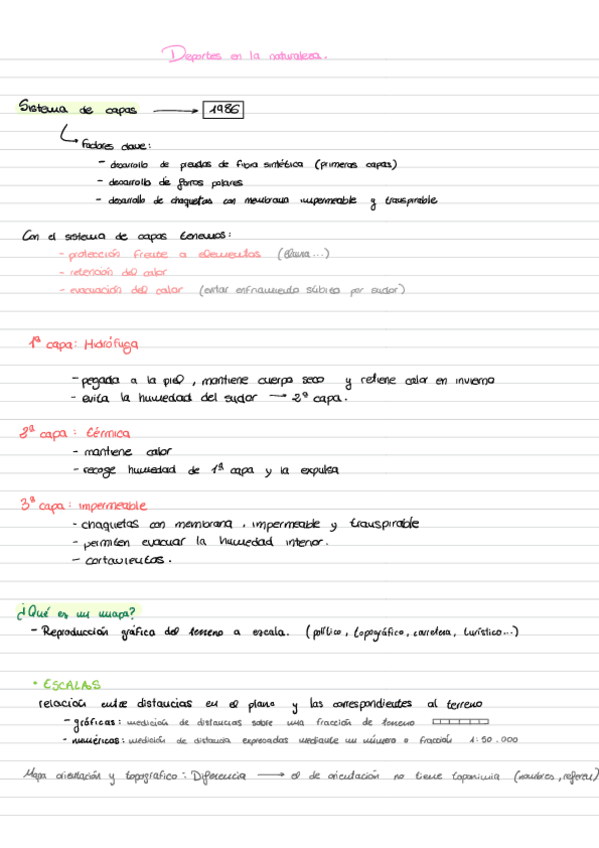 Deportes en la naturaleza.
Sistema de capas → 1986
Factores clave:
- desarrollo de prendas de fibra sintética (primeras capas)
- desarrollo de forros polares
- desarrollo de chaquetas con membrana impermeable y transpirable
Con el sistema de capas tenemos:
- protección frente a elementos (lluvia...)
- retención del calor
- evacuación del calor (evitar enfriamiento súbito por sudor)
1ª capa: Hidrófuga
- pegada a la piel, mantiene cuerpo seco y retiene calor en invierno
- evita la humedad del sudor → 2ª capa.
2ª capa: térmica
- mantiene calor
- recoge humedad de 1ª capa y la expulsa
3ª capa: impermeable
- chaquetas con membrana, impermeable y transpirable
- permiten evacuar la humedad interior.
- cortavientos.
¿Qué es un mapa?
- Reproducción gráfica del terreno a escala. (político, topográfico, carretera, turístico...)
• ESCALAS
relación entre distancias en el plano y las correspondientes al terreno
- gráficas: medición de distancias sobre una fracción de terreno
- numéricas: medición de distancia expresadas mediante un número o fracción 1:50.000
Mapa orientación y topográfico: Diferencia → el de orientación no tiene toponimia (nombres, referen)